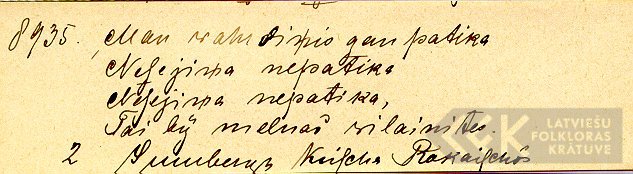 8935. Man vahrdinis gan patika
Neſejiņa nepatika
Neſejiņa nepatika,
Tai by melnas vilainites.
2 Krischa Rakaischös
LATVIEŠU
FOLKLORAS
KRĀTUVE